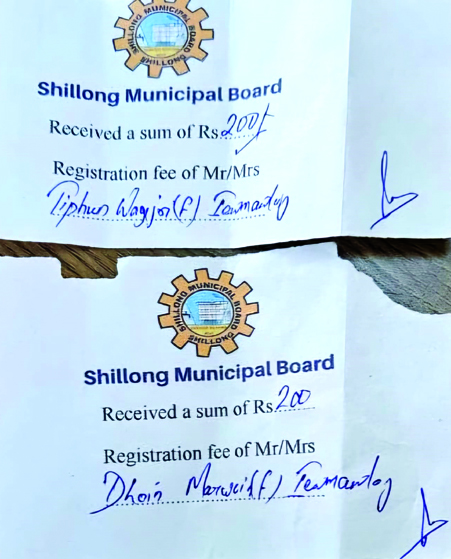 SHILLONG MUNICIPAL BOARD
SHILLONG
Shillong Municipal Board
Received a sum of Rs.200/-
Registration fee of Mr/Mrs
(f)
SHILLONG MUNICIPAL BOARD
SHILLONG
Shillong Municipal Board
Received a sum of Rs.200
Registration fee of Mr/Mrs
Dhoin (f)